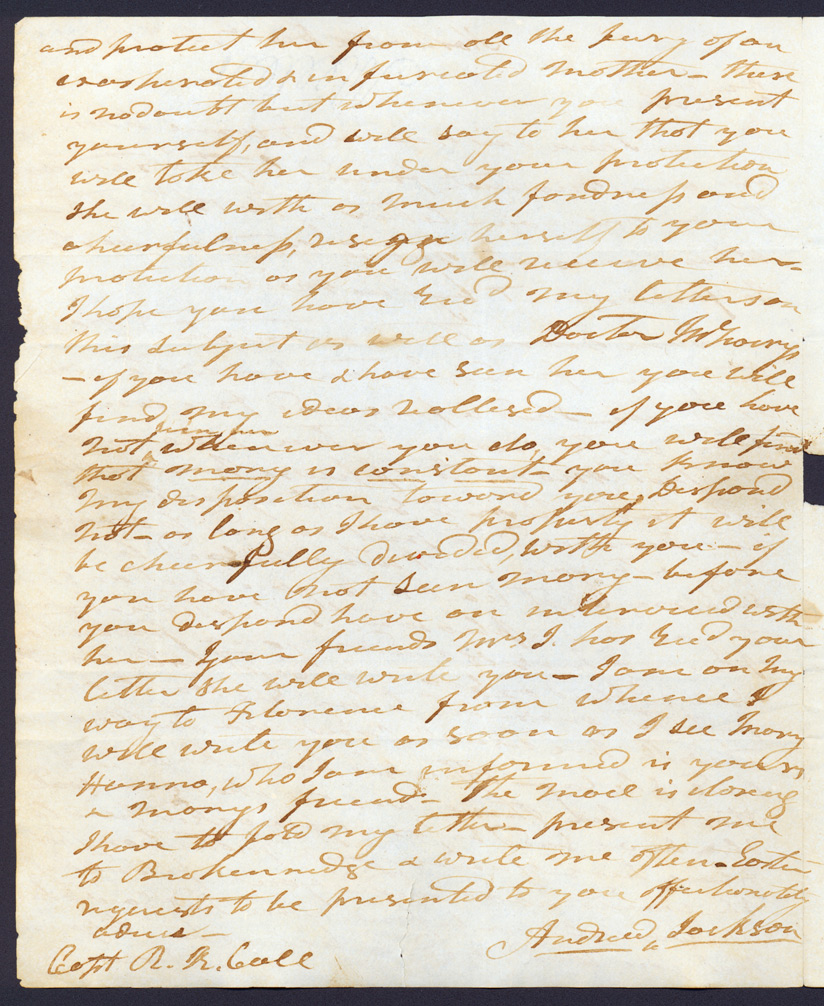 and protect her from all the fury of an
exasperated & infuriated mother – there
is no doubt but whenever you present
yourself, and will say to her that you
will take her under your protection
she will with as much fondness and
cheerfulness, resign herself to your
protection as you will receive her–
I hope you have recd my letters on
this subject as well as Doctor
– if you have & have seen her you will
find my ideas reallised – if you have
not, whenever you do, you will find
that mary is constant – you know
my disposition toward you, Despond
not – as long as I have property it will
be cheerfully divided, with you – if
you have not seen mary – before
you despond have an interview with
her – Your friend Mrs J. has recd your
letter she will write you – I am on my
way to Florence from whence I
will write you as soon as I see Mary
Hanna, who I am informed is yours
& marys friend – The mail is closing
I have to fold my letter – present me
to Brokenridge & write me often –
requests to be presented to you affectionately
adieu –
Andrew Jackson
Capt R. K. Call